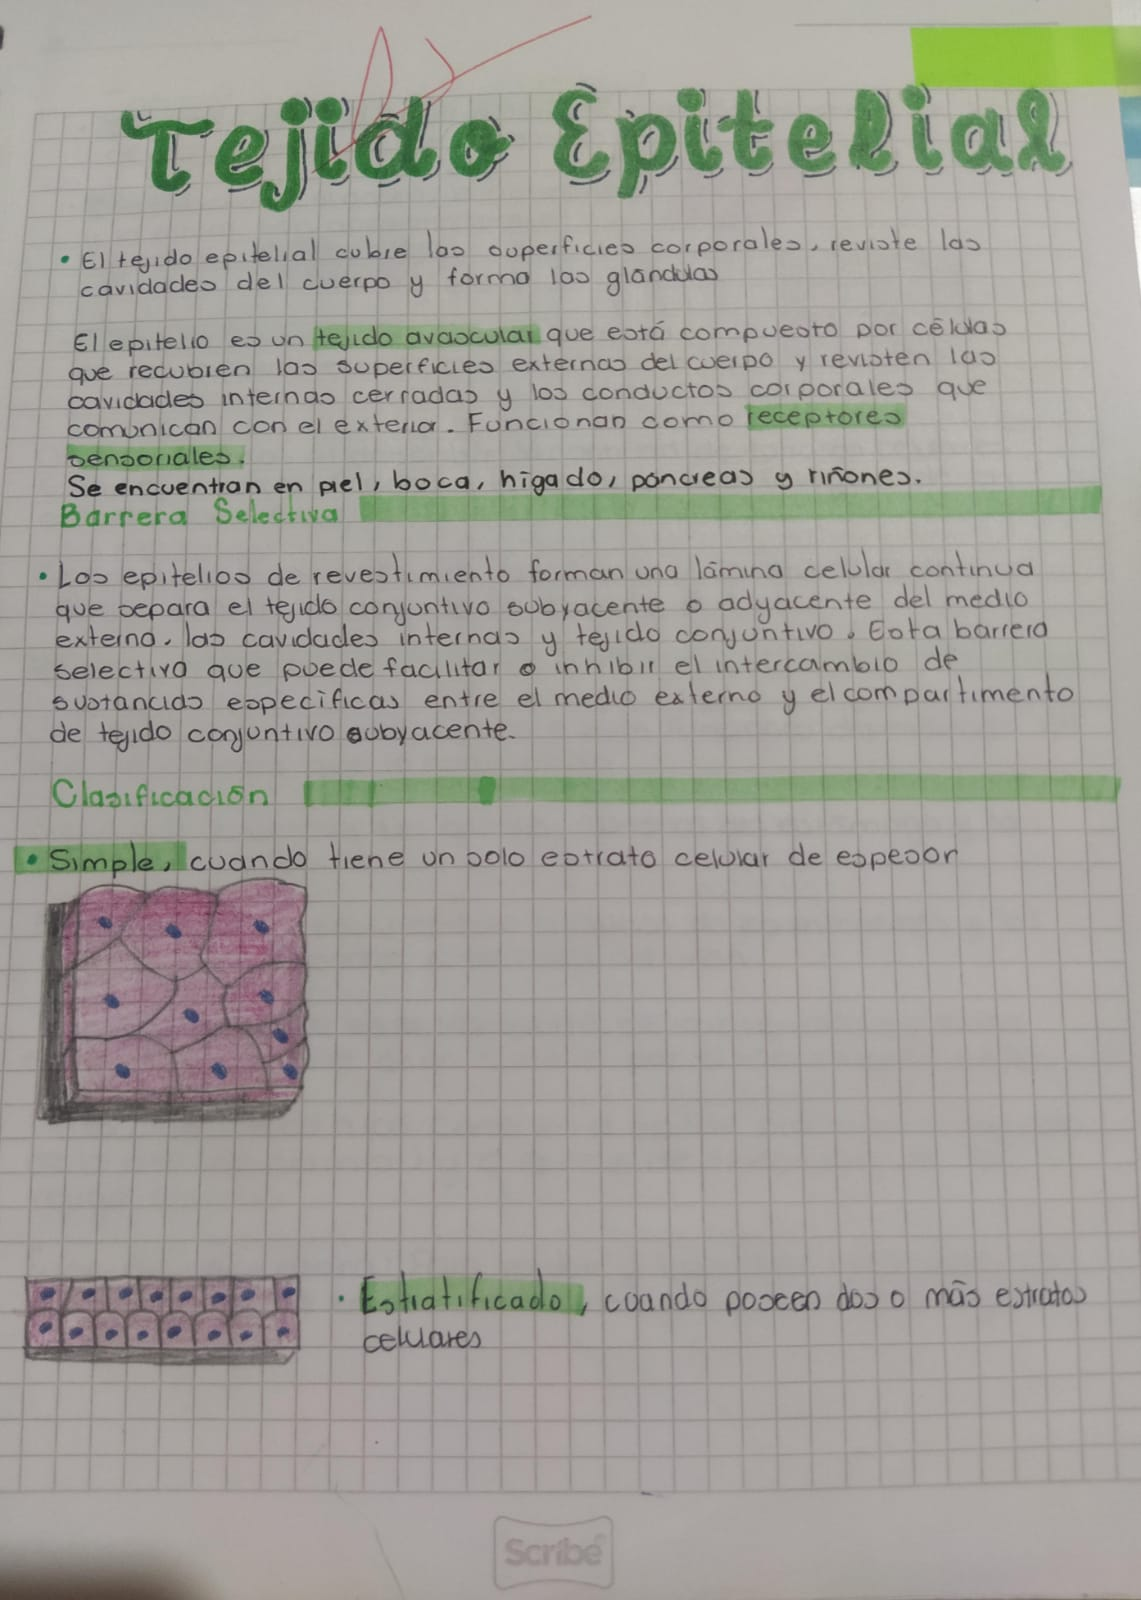 Tejido Epitelial
• El tejido epitelial cubre las superficies corporales, reviste las
cavidades del cuerpo y forma las glandulas
El epitelio es un tejido avascular que está compuesto por células
que recubren las superficies externas del cuerpo y revisten las
cavidades internas cerradas y los conductos corporales que
comunican con el exterior. Funcionan como receptores
sensoriales.
Se encuentran en piel, boca, hígado, páncreas y riñones.
Barrera Selectiva
• Los epitelios de revestimiento forman una lámina celular continua
que separa el tejido conjuntivo subyacente o adyacente del medio
externo, las cavidades internas y tejido conjuntivo. Esta barrera
selectiva que puede facilitar o inhibir el intercambio de
sustancias específicas entre el medio externo y el compartimento
de tejido conjuntivo subyacente.
Clasificación
• Simple, cuando tiene un solo estrato celular de espesor
• Estratificado, cuando poseen dos o más estratos
celulares
Scribe